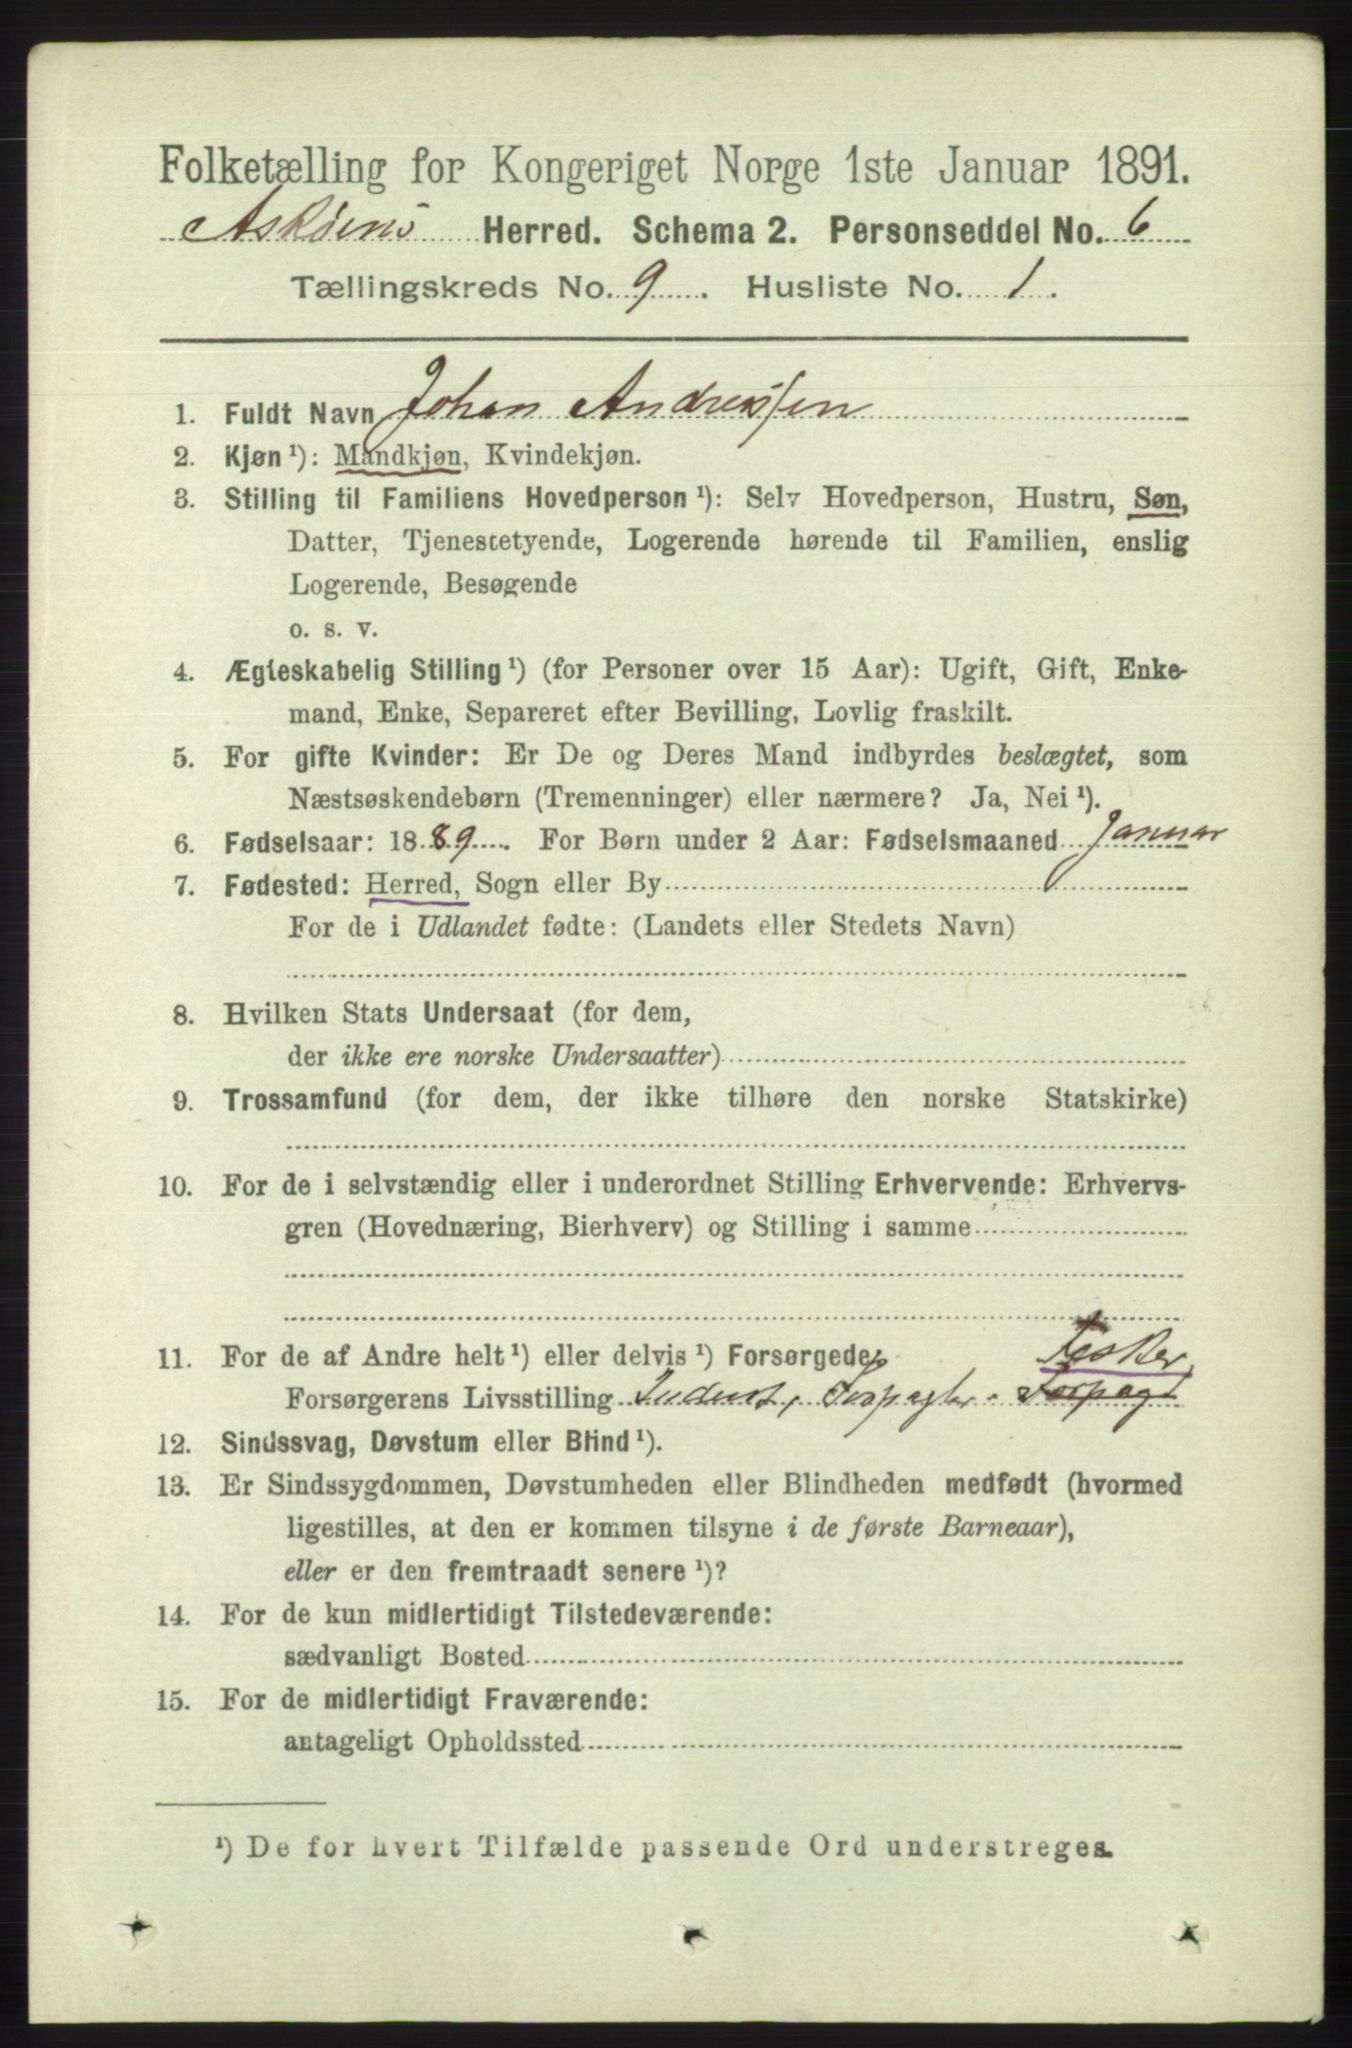 Folketælling for Kongeriget Norge 1ste Januar 1891.
Askøens Herred. Schema 2. Personseddel No. 6
Tællingskreds No. 9. Husliste No. 1.
1. Fuldt Navn Johan Andressen
2. Kjøn ¹): Mandkjøn, Kvindekjøn.
3. Stilling til Familiens Hovedperson ¹): Selv Hovedperson, Hustru, Søn,
Datter, Tjenestetyende, Logerende hørende til Familien, enslig
Logerende, Besøgende
o. s. v.
4. Ægteskabelig Stilling ¹) (for Personer over 15 Aar): Ugift, Gift, Enke-
mand, Enke, Separeret efter Bevilling, Lovlig fraskilt.
5. For gifte Kvinder: Er De og Deres Mand indbyrdes beslægtet, som
Næstsøskendebørn (Tremenninger) eller nærmere? Ja, Nei ¹).
6. Fødselsaar: 1889. For Børn under 2 Aar: Fødselsmaaned Januar
7. Fødested: Herred, Sogn eller By
For de i Udlandet fødte: (Landets eller Stedets Navn)
8. Hvilken Stats Undersaat (for dem,
der ikke ere norske Undersaatter)
9. Trossamfund (for dem, der ikke tilhøre den norske Statskirke)
10. For de i selvstændig eller i underordnet Stilling Erhvervende: Erhvervs-
gren (Hovednæring, Bierhverv) og Stilling i samme
11. For de af Andre helt ¹) eller delvis ¹) Forsørgede, Fisker
Forsørgerens Livsstilling Forpagter. Forpagt
12. Sindssvag, Døvstum eller Blind ¹).
13. Er Sindssygdommen, Døvstumheden eller Blindheden medfødt (hvormed
ligestilles, at den er kommen tilsyne i de første Barneaar),
eller er den fremtraadt senere ¹)?
14. For de kun midlertidigt Tilstedeværende:
sædvanligt Bosted
15. For de midlertidigt Fraværende:
antageligt Opholdssted
¹) De for hvert Tilfælde passende Ord understreges.